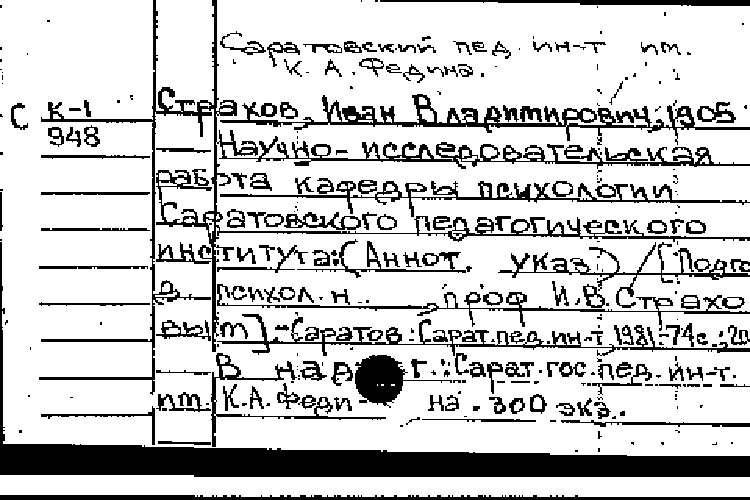 Саратовский пед. ин-т им.
К. А. Федина.
С К-1 Страхов, Иван Владимирович, 1905
948 Научно-исследовательская
работа кафедры психологии
Саратовского педагогического
института: (Аннот. указ) / [Подго
психол. н., проф. И.В. Страхо
вым]. - Саратов: Сарат. пед. ин-т, 1981. - 74с.; 20
В г.: Сарат. гос. пед. ин-т.
им. К.А. 300 экз.